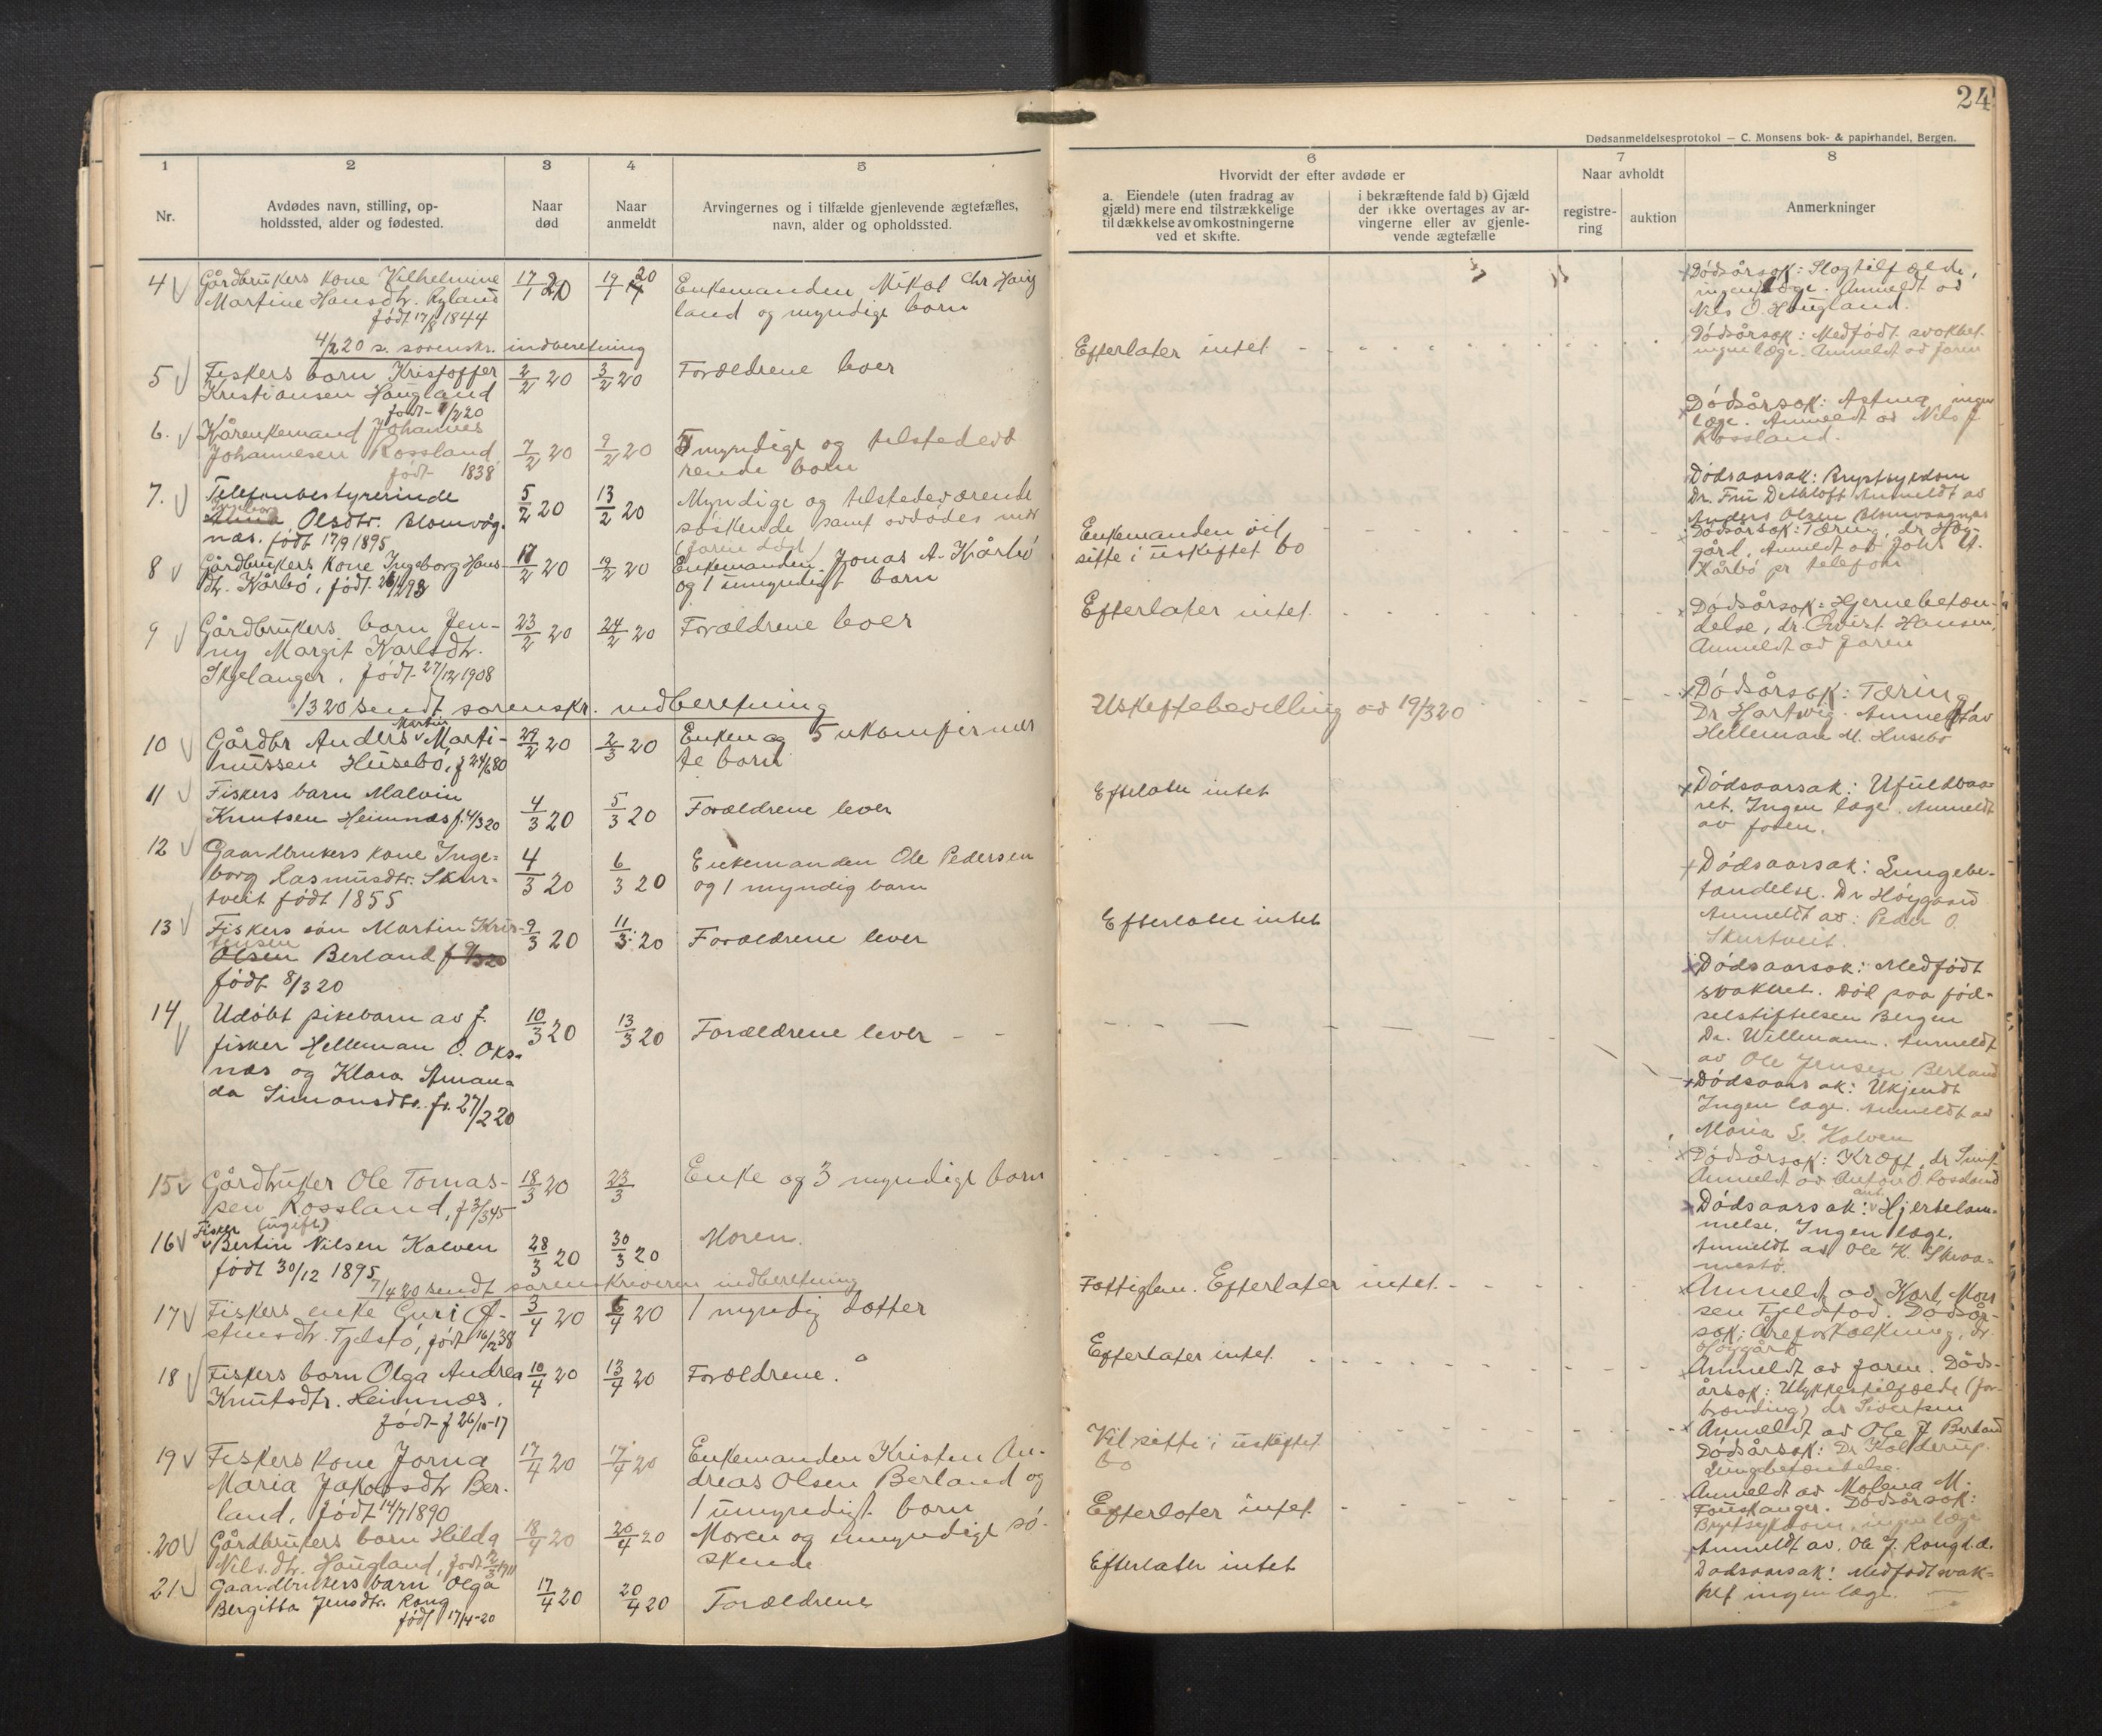 24
Dødsanmeldelsesprotokol — C. Monsens bok- & papirhandel, Bergen.
1
2
3
4
5
Nr.
Avdødes navn, stilling, op-
holdssted, alder og fødested.
Naar
død
Naar
anmeldt
Arvingernes og i tilfælde gjenlevende ægtefælles,
navn, alder og opholdssted.
6
Hvorvidt der efter avdøde er
a. Eiendele (uten fradrag av
gjæld) mere end tilstrækkelige
til dækkelse av omkostningerne
ved et skifte.
i bekræftende fald b) Gjæld
der ikke overtages av ar-
vingerne eller av gjenle-
vende ægtefælle
7
Naar avholdt
registre-
ring
auktion
8
Anmerkninger
4 Gårdbrukers kone Vilhelmine
Martine Hansdtr. Ryland
født 17/8 1844
17/1 20
19/1 20
Enkemanden Mikal Chr Haug
land og myndige barn
Dødsårsak: Slagtilfælde,
ingen læge. Anmeldt av
Nils O. Haugland.
4/2 20 s. sorenskr. indberetning
5 Fiskers barn Kristoffer
Kristiansen Haugland
født 1/2 20
2/2 20
3/2 20
Forældrene lever
Efterlater intet
Dødsårsak: Medfødt svakhet
ingen læge. Anmeldt av faren
6. Kårenkemand Johannes
Johannesen Rossland
født 1838
7/2 20
9/2 20
5 myndige og tilstedevæ
rende barn
Dødsårsak: Astma, ingen
læge. Anmeldt av Nils J
Rossland.
7. Telefonbestyrerinde
Olsdtr. Blomvåg-
næs. født 17/9 1895
5/2 20
13/2 20
Myndige og tilstedeværende
søskende samt avdødes mor
(faren død)
Dødsaarsak: Brystsygdom
Dr. Fru Dethloff Anmeldt av
Anders Olsen Blomvaagnæs
8 Gårdbrukers kone Ingeborg Hans-
dtr. Kårbø, født
17/2 20
19/2 20
Enkemanden Jonas A. Kårbø
og 1 umyndigt barn
Enkemanden vil
sitte i uskiftet bo
Dødsårsak: Tæring, dr. Høy-
gård, Anmeldt av Johs A.
Kårbø pr telefon
9 Gårdbrukers barn Jen-
ny Margit Karlsdtr.
Skjelanger. født 27/12 1908
23/2 20
24/2 20
Forældrene lever
Efterlater intet
Dødsårsak: Hjernebetæn-
delse, dr. Hansen,
Anmeldt av faren
1/3 20 sendt sorenskr. indberetning
10 Gårdbr Anders Martin Marti-
nussen Husebø, f 24/6 80
29/2 20
2/3 20
Enken og 5 ukonfirmer
te barn
Uskiftebevilling av 19/3 20
Dødsårsak: Tæring
Dr Hartvig. Anmeldt av
Helleman M. Husebø
11 Fiskers barn Malvin
Knutsen Heimnæs f. 4/3 20
4/3 20
5/3 20
Forældrene lever
Efterlater intet
Dødsaarsak: Ufuldbaa-
ret. Ingen læge. Anmeldt
av faren.
12 Gaardbrukers kone Inge=
borg Rasmusdtr. Skur-
tveit født 1855
4/3 20
6/3 20
Enkemanden Ole Pedersen
og 1 myndig barn
Dødsaarsak: Lungebe-
tændelse. Dr Høygaard
Anmeldt av: Peder O.
Skurtveit.
13 Fiskers søn Martin Kris-
tensen
Olsen Berland f 9/3 20
født 8/3 20
9/3 20
11/3 20
Forældrene lever
Efterlater intet
Dødsaarsak: Medfødt
svakhet. Død paa fød-
selstiftelsen Bergen
Dr. Willemann. Anmeldt
av Ole Jensen Berland
14 Udøbt pikebarn av f.
fisker Helleman O. Oks-
næs og Klara Aman-
da Simonsdtr. f. 27/2 20
10/3 20
13/3 20
Forældrene lever
Dødsaarsak: Ukjendt
Ingen læge. Anmeldt av
Maria S. Kalven
15 Gårdbruker Ole Tomas-
sen Rossland, f 3/3 45
18/3 20
23/3
Enke og 3 myndige barn
Dødsårsak: Kræft, dr
Anmeldt av Anton O. Rossland
16 Fisker (ugift)
Bertin Nilsen Kalven
født 30/12 1895
28/3 20
30/3 20
Moren.
Dødsaarsak: ant. Hjertelam-
melse. Ingen læge.
Anmeldt av Ole K.
7/4 20 sendt sorenskriveren indberetning
17 Fiskers enke Guri A-
Tjelstø, født 16/2 38
3/4 20
6/4 20
1 myndig datter
Fattiglem. Efterlater intet.
Anmeldt av Karl Mon
sen Fjeldstad. Dødsår-
sak: Åreforkalkning, dr.
Høygård
18 Fiskers barn Olga Andrea
Knutsdtr. Heimnæs.
født f 26/10-17
10/4 20
13/4 20
Forældrene.
Efterlater intet.
Anmeldt av faren. Døds-
årsak: Ulykkestilfælde (for-
brænding) dr Sivertsen
19 Fiskers kone Jorna
Maria Jakobsdtr Ber-
land, født 14/7 1890
17/4 20
17/4 20
Enkemanden Kristen An-
dreas Olsen Berland og
1 umyndigt barn
Vil sitte i uskiftet
bo
Anmeldt av Ole J Berland
Dødsårsak: Dr Kolderup.
Lungebetændelse.
20 Gårdbrukers barn Hilda
Nilsdtr. Haugland, født 1911
18/4 20
20/4 20
Moren og umyndige sø-
skende
Efterlater intet
Anmeldt av Malena M.
Fauskanger. Dødsårsak:
Brystsykdom, ingen læge
21 Gaardbrukers barn Olga
Bergitta Jensdtr. Rong
født 17/4-20
17/4 20
20/4 20
Forældrene
Efterlater intet
Anmeldt av. Ole J. Rong s.d.
Dødsaarsak: Medfødt svak=
het ingen læge.